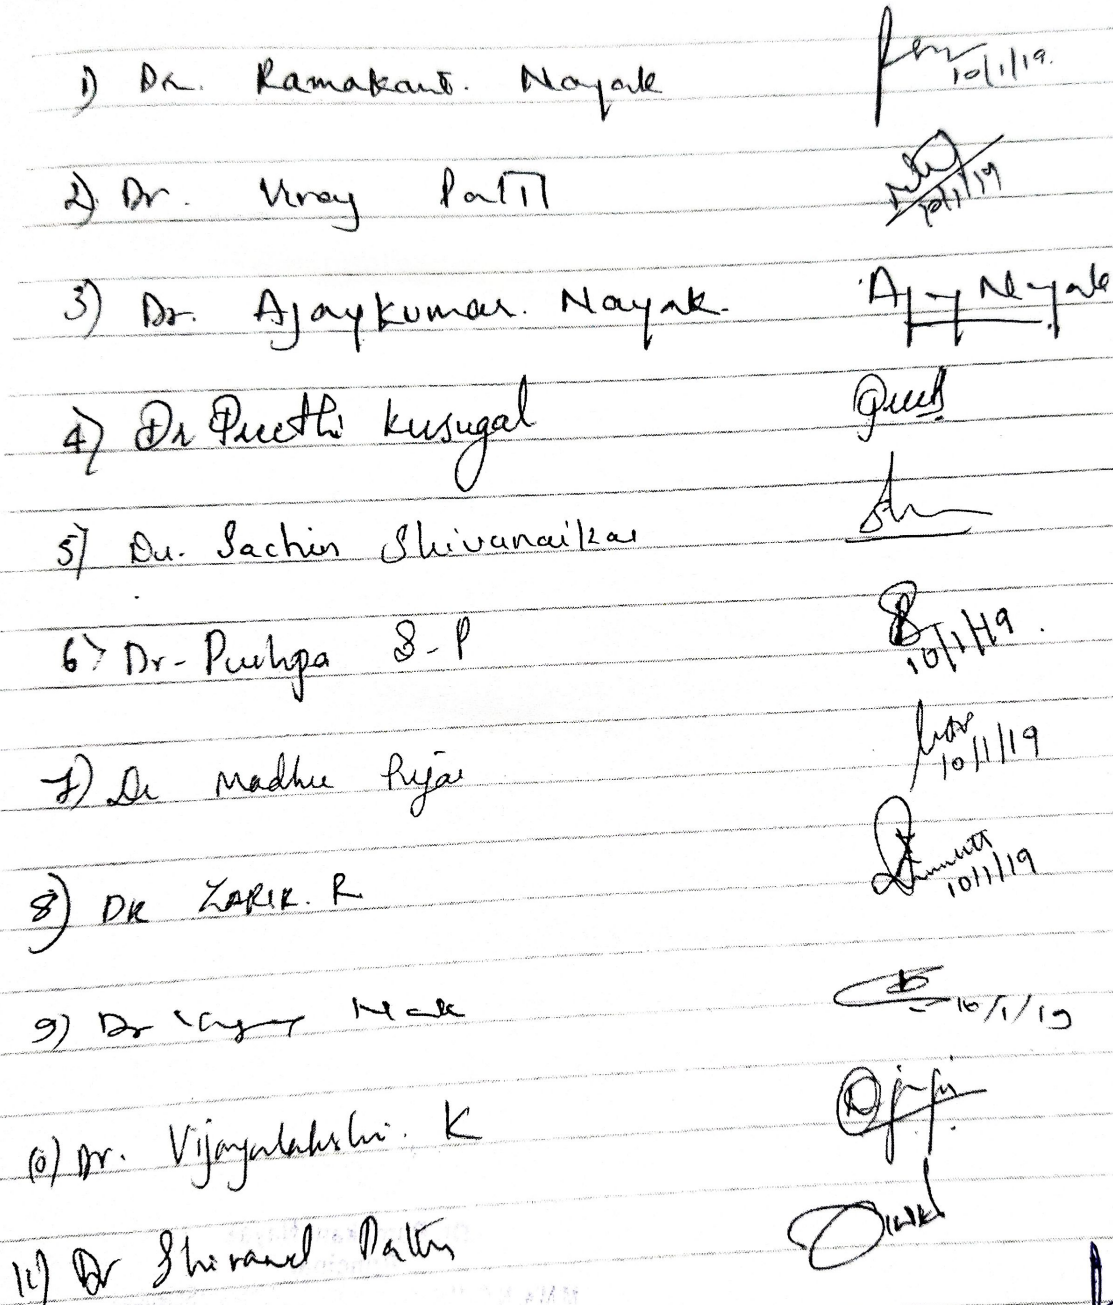 1) Dr. Ramakant. Nayak 10/1/19.
2) Dr. Vinay Patil 10/1/19
3) Dr. Ajaykumar. Nayak. Ajay Nayak
4) Dr Preethi Kusugal
5) Dr. Sachin Shivanaikar
6) Dr- Pushpa S-P 10/1/19.
7) Dr Madhu Pujar 10/1/19
8) DR ZARIR. R 10/1/19
9) Dr 10/1/19
10) Dr. Vijayalakshi. K
11) Dr